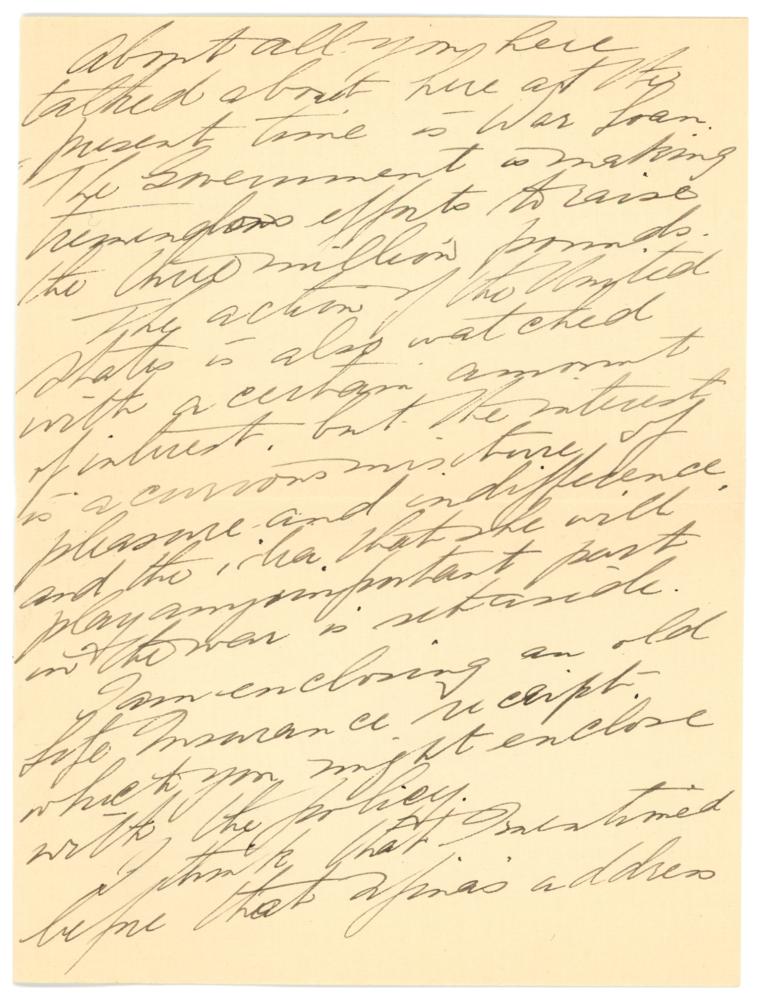 About all you here
talked about here at the
present time is War Loan.
The Government is making
tremendous efforts to raise
the three million pounds.
The action of the United
States is also watched
with a certain amount
of interest, but the interest
is a curious mixture of
pleasure and indifference
and the idea that she will
play any important part
in the war is set aside.
I am enclosing an old
Life Insurance receipt.
which you might enclose
with the policy.
I think that I mentioned
before that address